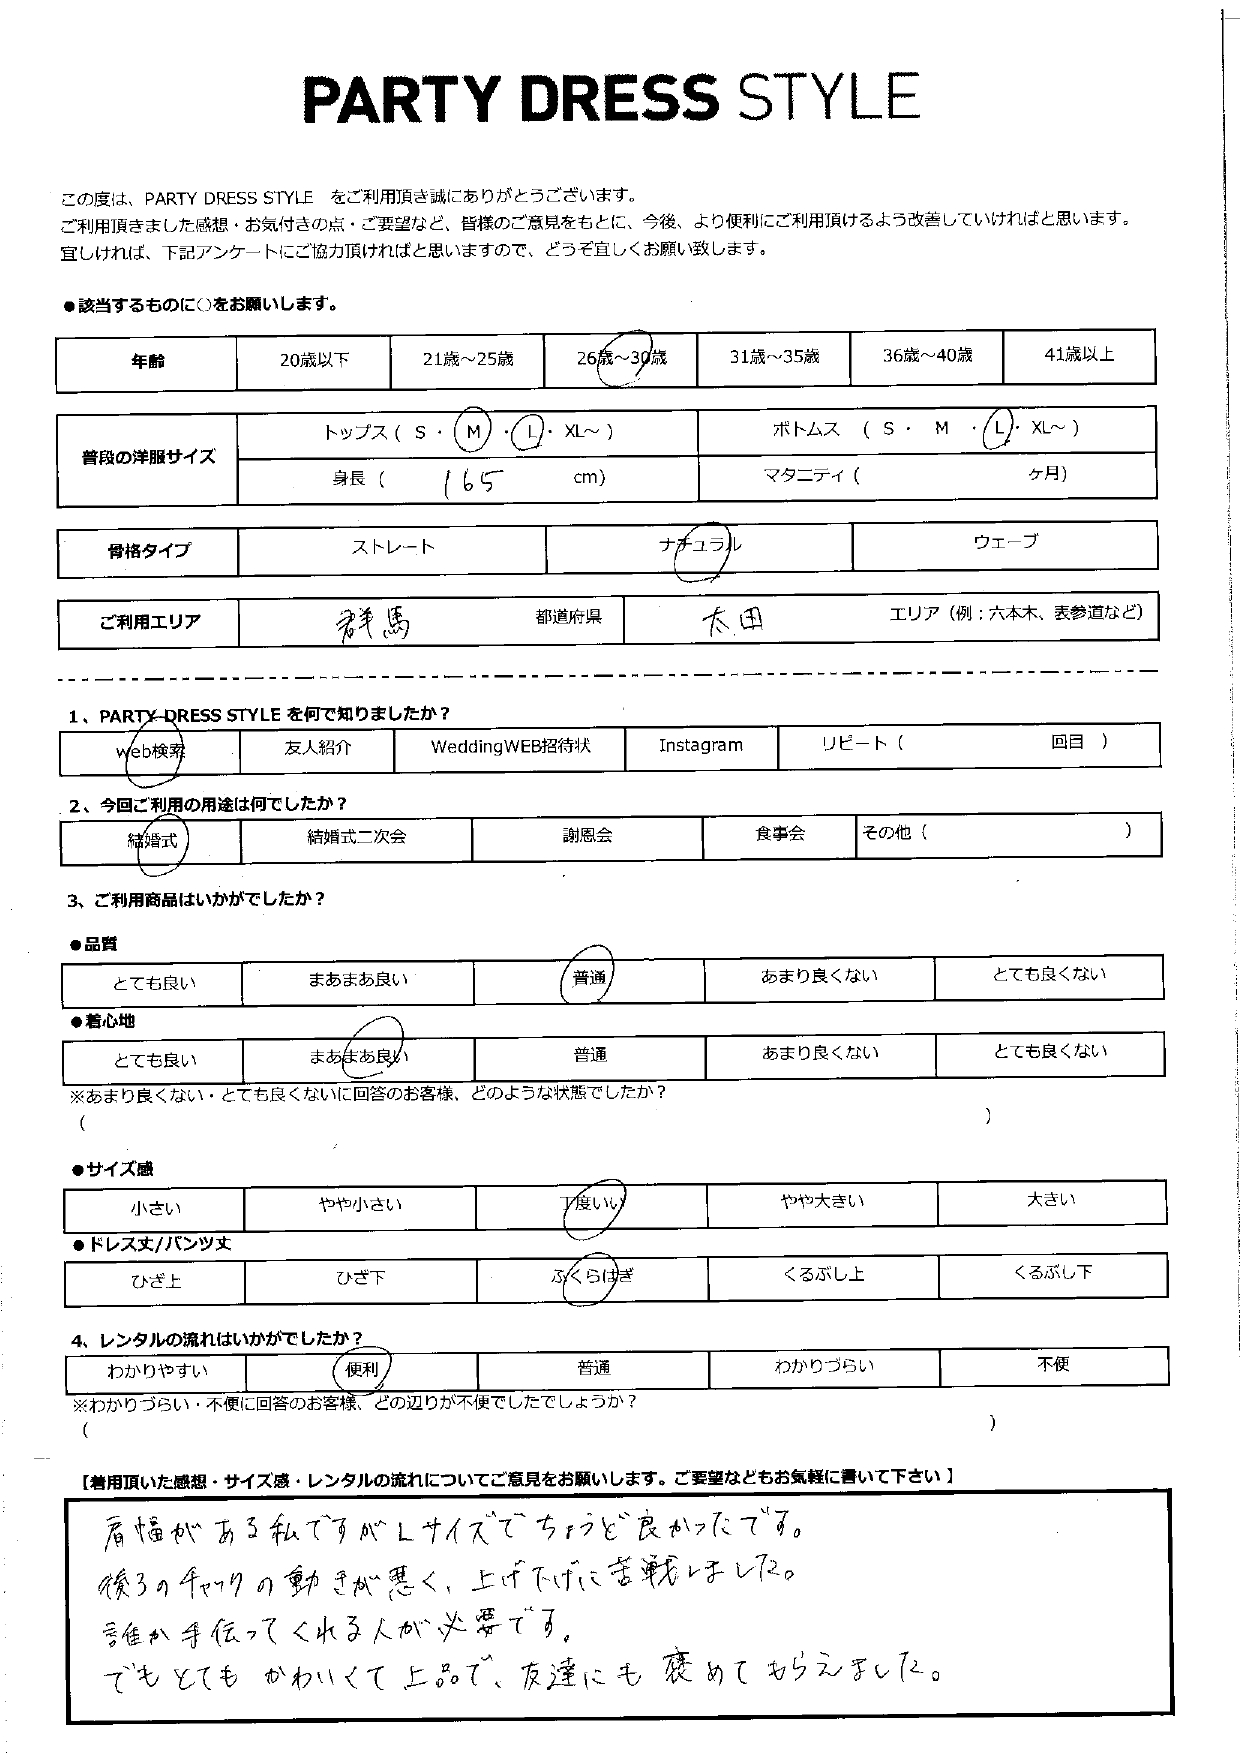 PARTY DRESS STYLE
この度は、PARTY DRESS STYLE をご利用頂き誠にありがとうございます。
ご利用頂きました感想・お気付きの点・ご要望など、皆様のご意見をもとに、今後、より便利にご利用頂けるよう改善していければと思います。
宜しければ、下記アンケートにご協力頂ければと思いますので、どうぞ宜しくお願い致します。
●該当するものに○をお願いします。
年齢 20歳以下 21歳～25歳 26歳～30歳 31歳～35歳 36歳～40歳 41歳以上
普段の洋服サイズ トップス ( S ・ M ・ L ・ XL～ ) ボトムス ( S ・ M ・ L ・ XL～ )
身長 ( 165 cm) マタニティ ( ヶ月)
骨格タイプ ストレート ナチュラル ウェーブ
ご利用エリア 群馬 都道府県 太田 エリア (例：六本木、表参道など)
1、PARTY DRESS STYLE を何で知りましたか？
web検索 友人紹介 WeddingWEB招待状 Instagram リピート ( 回目 )
2、今回ご利用の用途は何でしたか？
結婚式 結婚式二次会 謝恩会 食事会 その他 ( )
3、ご利用商品はいかがでしたか？
●品質
とても良い まあまあ良い 普通 あまり良くない とても良くない
●着心地
とても良い まあまあ良い 普通 あまり良くない とても良くない
※あまり良くない・とても良くないに回答のお客様、どのような状態でしたか？
( )
●サイズ感
小さい やや小さい 丁度いい やや大きい 大きい
●ドレス丈/パンツ丈
ひざ上 ひざ下 ふくらはぎ くるぶし上 くるぶし下
4、レンタルの流れはいかがでしたか？
わかりやすい 便利 普通 わかりづらい 不便
※わかりづらい・不便に回答のお客様、どの辺りが不便でしたでしょうか？
( )
【着用頂いた感想・サイズ感・レンタルの流れについてご意見をお願いします。ご要望などもお気軽に書いて下さい】
肩幅がある私ですがLサイズでちょうど良かったです。
後ろのチャックの動きが悪く、上げ下げに苦戦しました。
誰か手伝ってくれる人が必要です。
でもとてもかわいくて上品で、友達にも褒めてもらえました。